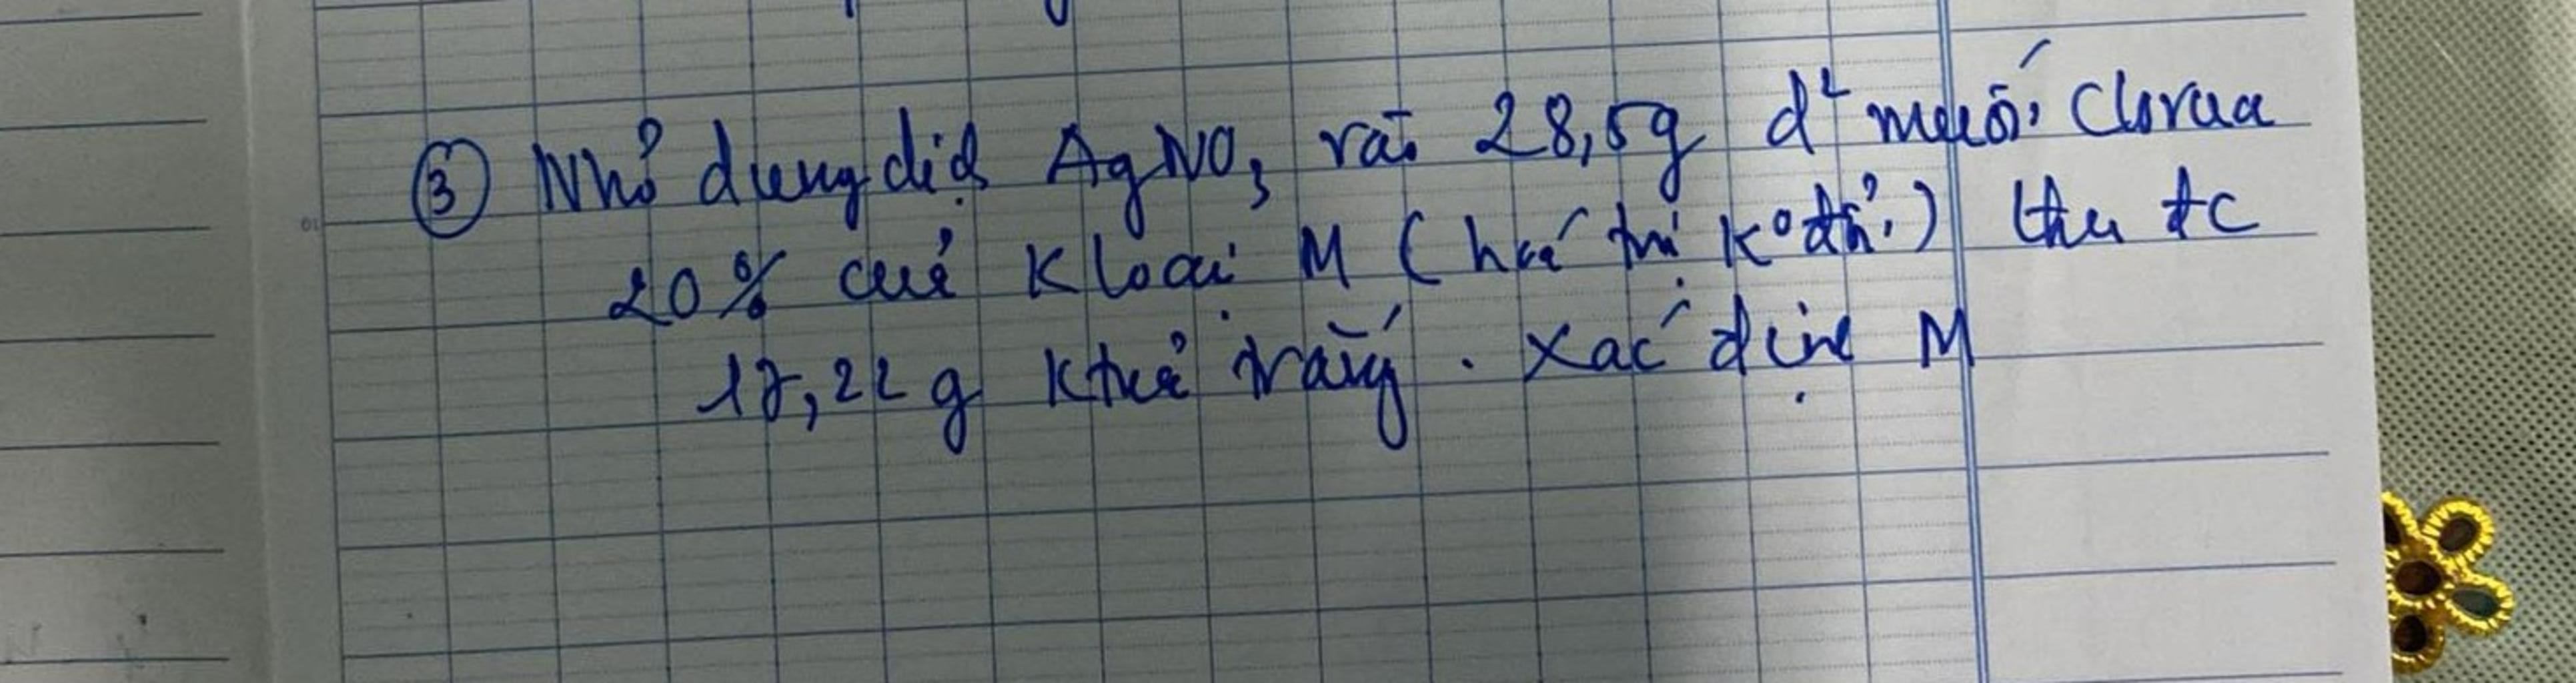 ③ Nhỏ dung dịch AgNO₃ vào 28,5g d² muối Clorua
20% của Kloại M (hoá trị K⁰ đổi) thu đc
17,22g Ktủa trắng. Xác định M